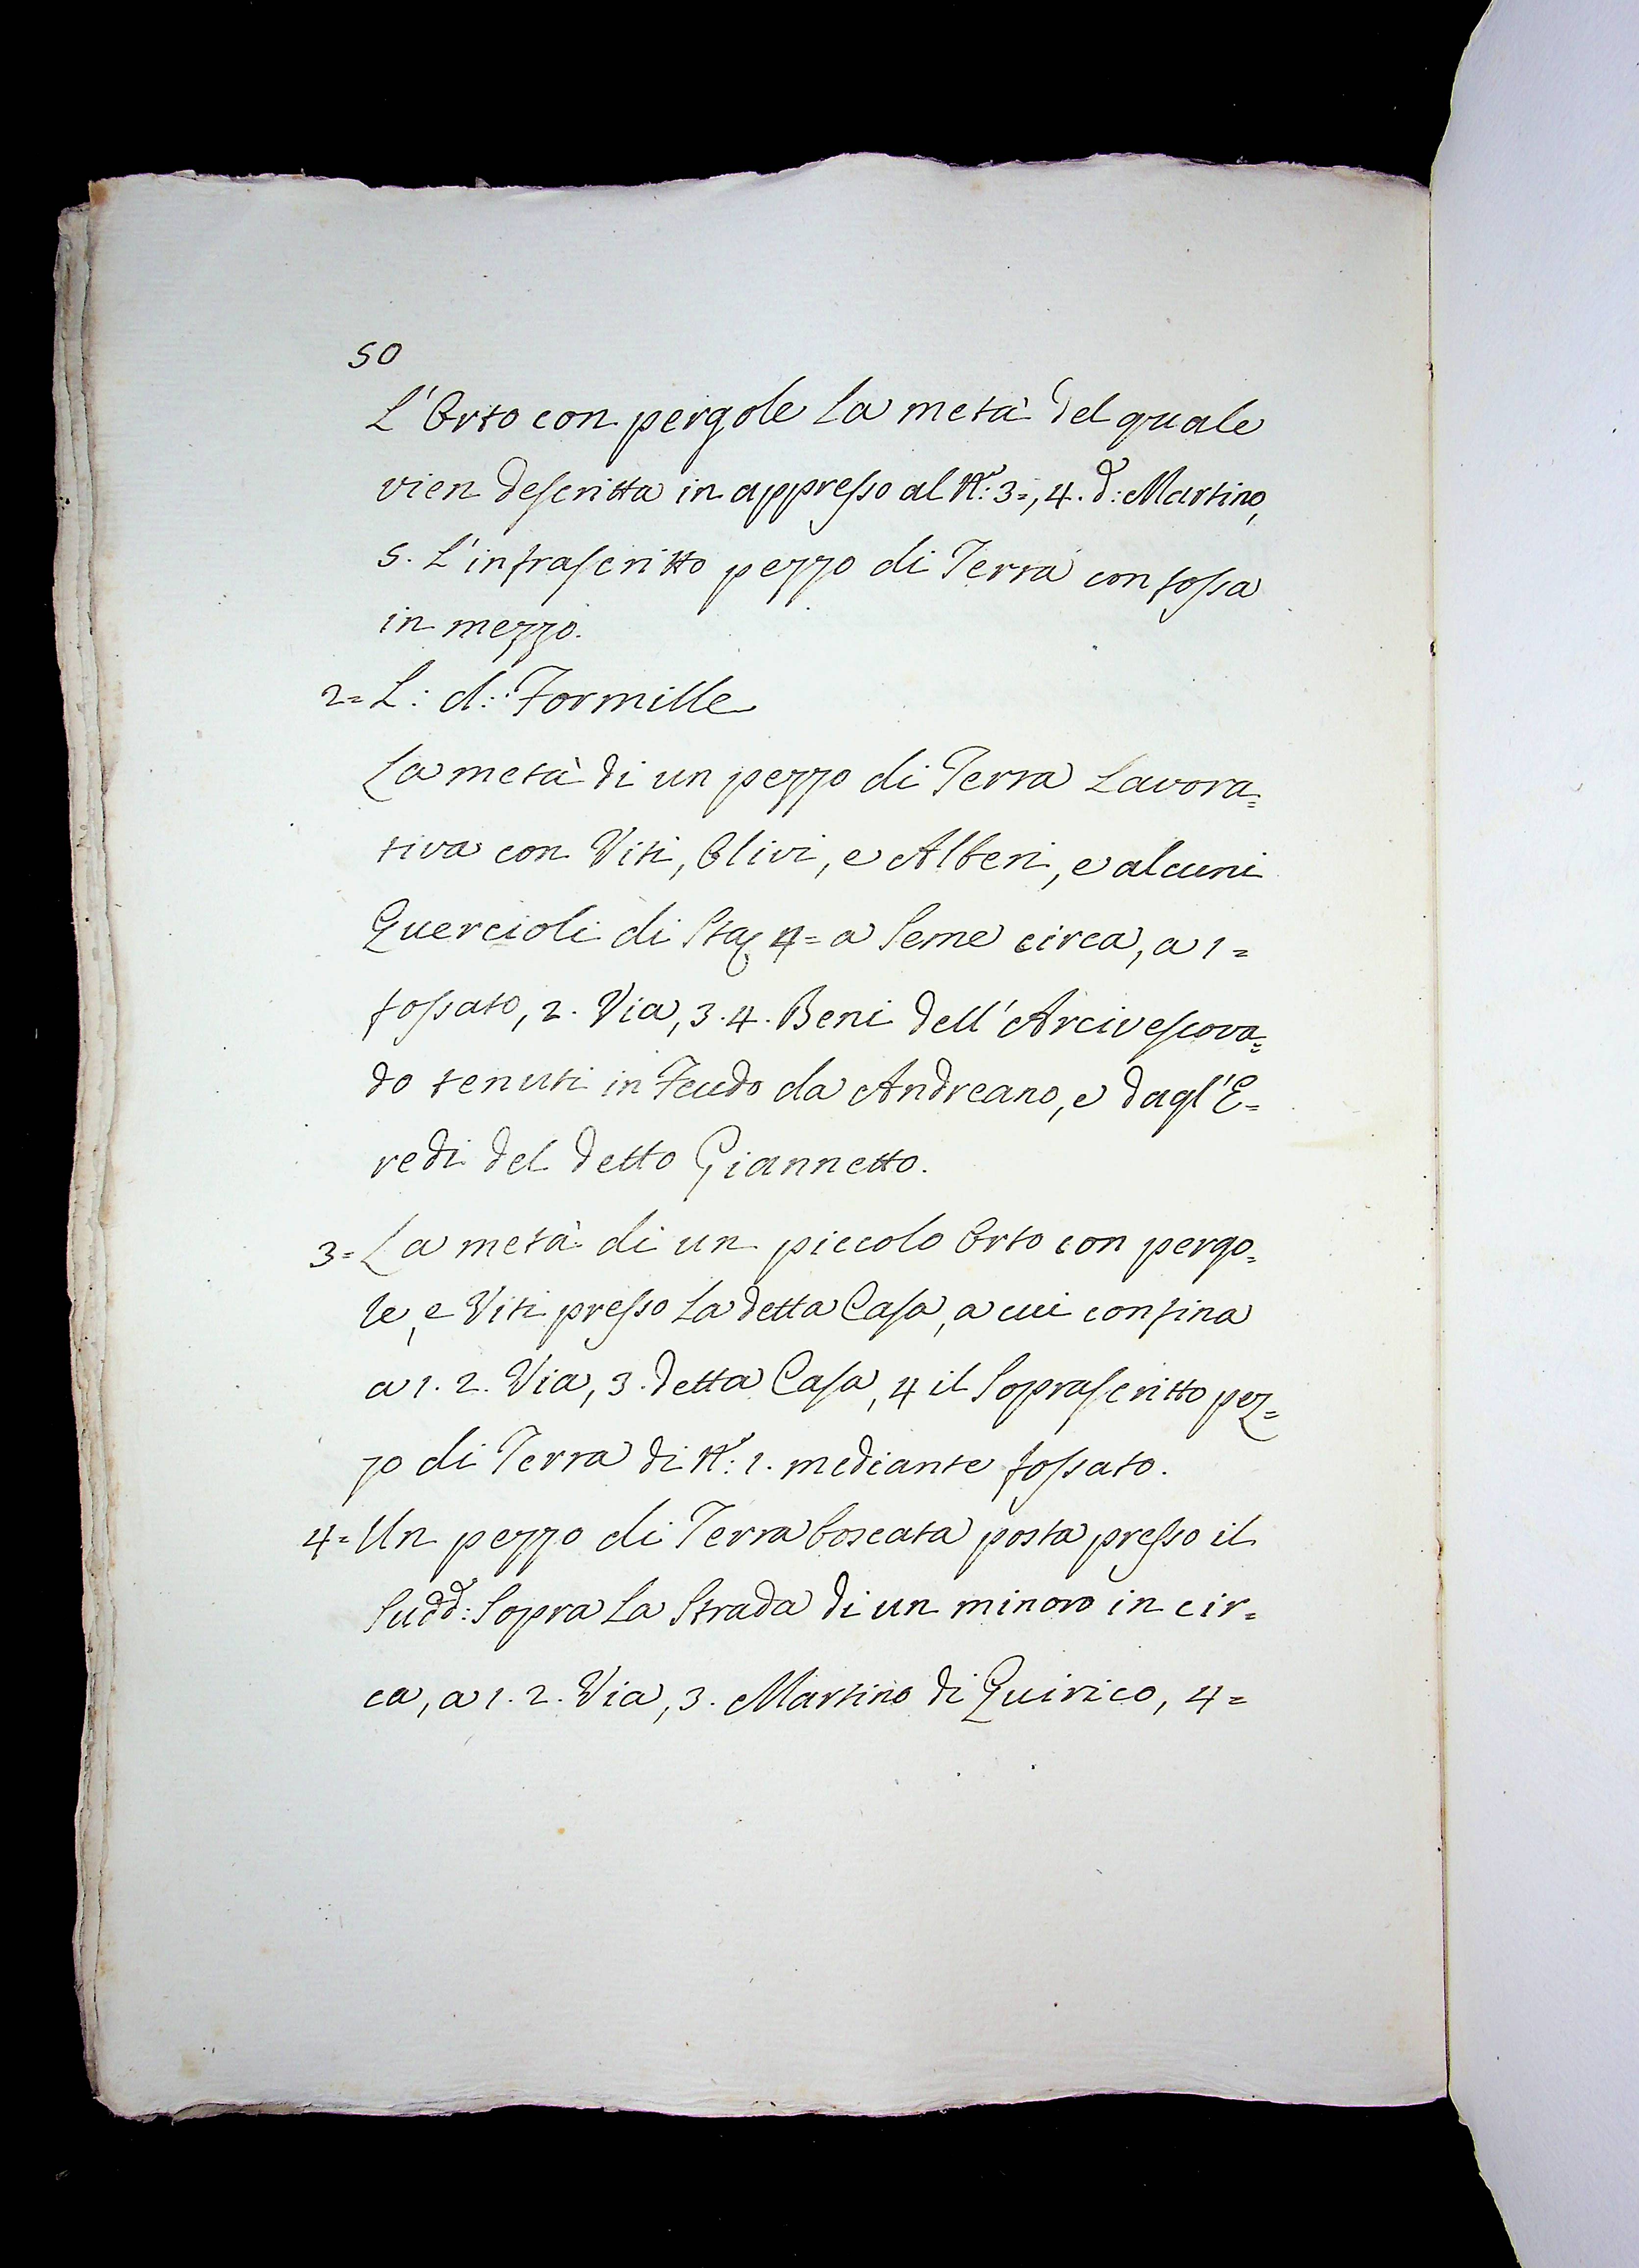 50
L'Orto con pergole la metà del quale
vien descritta in appresso al N.°: 3=, 4. d.°: Martino,
5. L'infrascritto pezzo di Terra con fossa
in mezzo.
2= L: d:: Formille
La metà di un pezzo di Terra Lavora=
tiva con Viti, Olivi, e Alberi, e alcuni
Quercioli di 4= a Seme circa, a 1=
fossato, 2. Via, 3. 4. Beni dell'Arcivescova=
do tenuti in Feudo da Andreano, e dagl'E=
redi del detto Giannetto.
3= La metà di un piccolo Orto con pergo=
le, e Viti presso la detta Casa, a cui confina
a 1. 2. Via, 3. detta Casa, 4 il Soprascritto pez=
zo di Terra di N.°: 1. mediante fossato.
4= Un pezzo di Terra boscata posta presso il
Sudd.°: Sopra la Strada di un minoro in cir=
ca, a 1. 2. Via, 3. Martino di Quirico, 4=